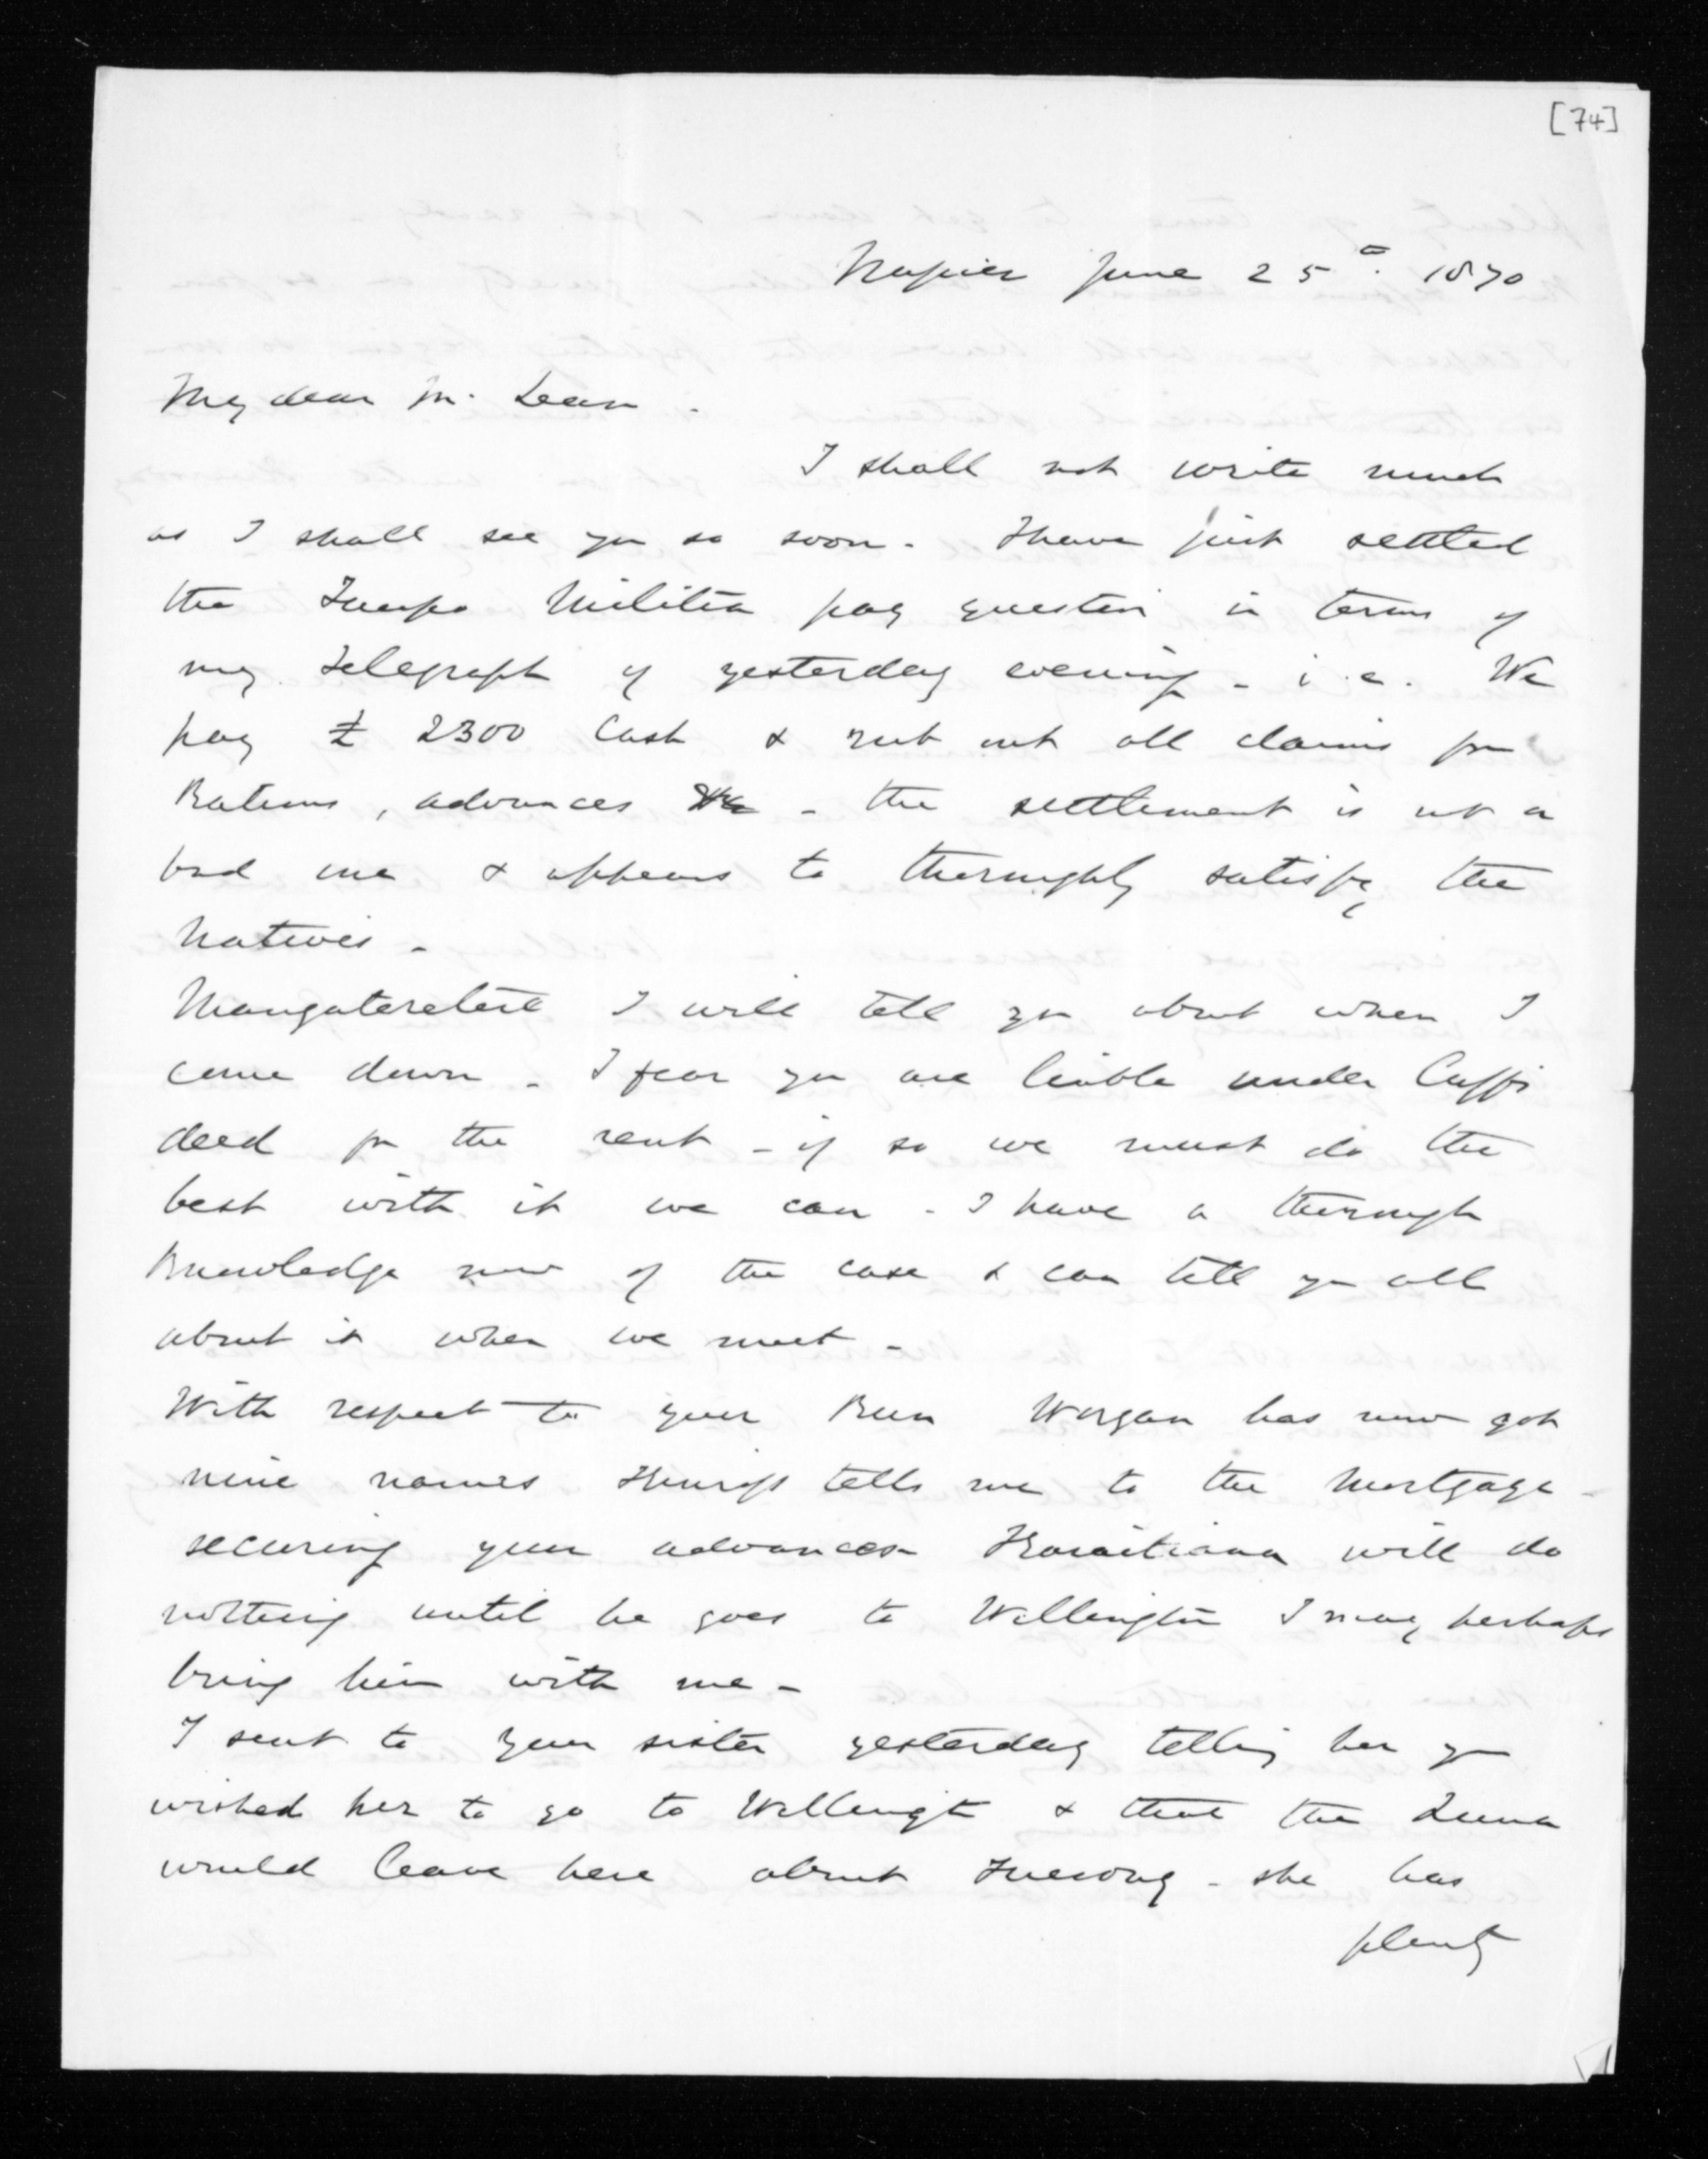 [74]
Napier June 25th. 1870
My dear Mc Lean -
I shall not write much
as I shall see you so soon - I have just settled
the Taupo Militia pay question in terms of
my telegraph of yesterday evening - i.e. We
pay £2300 Cash & rub out all claims for
Rations, advances &c - the settlement is not a
bad one & appears to thoroughly satisfy the
Natives -
Mangateretere I will tell you about when I
come down - I fear you are liable under Cuffs
deed for the rent - if so we must do the
best with it we can - I have a thorough
Knowledge now of the case & can tell you all
about it when we meet -
With respect to your Run Worgan has now got
nine names tells me to the Mortgage -
securing your advances - Karaitiana will do
nothing until he goes to Wellington I may perhaps
bring him with me -
I sent to your sister yesterday telling her you
wished her to go to Wellington & that the Luna
would leave here about Tuesday - she has
plenty